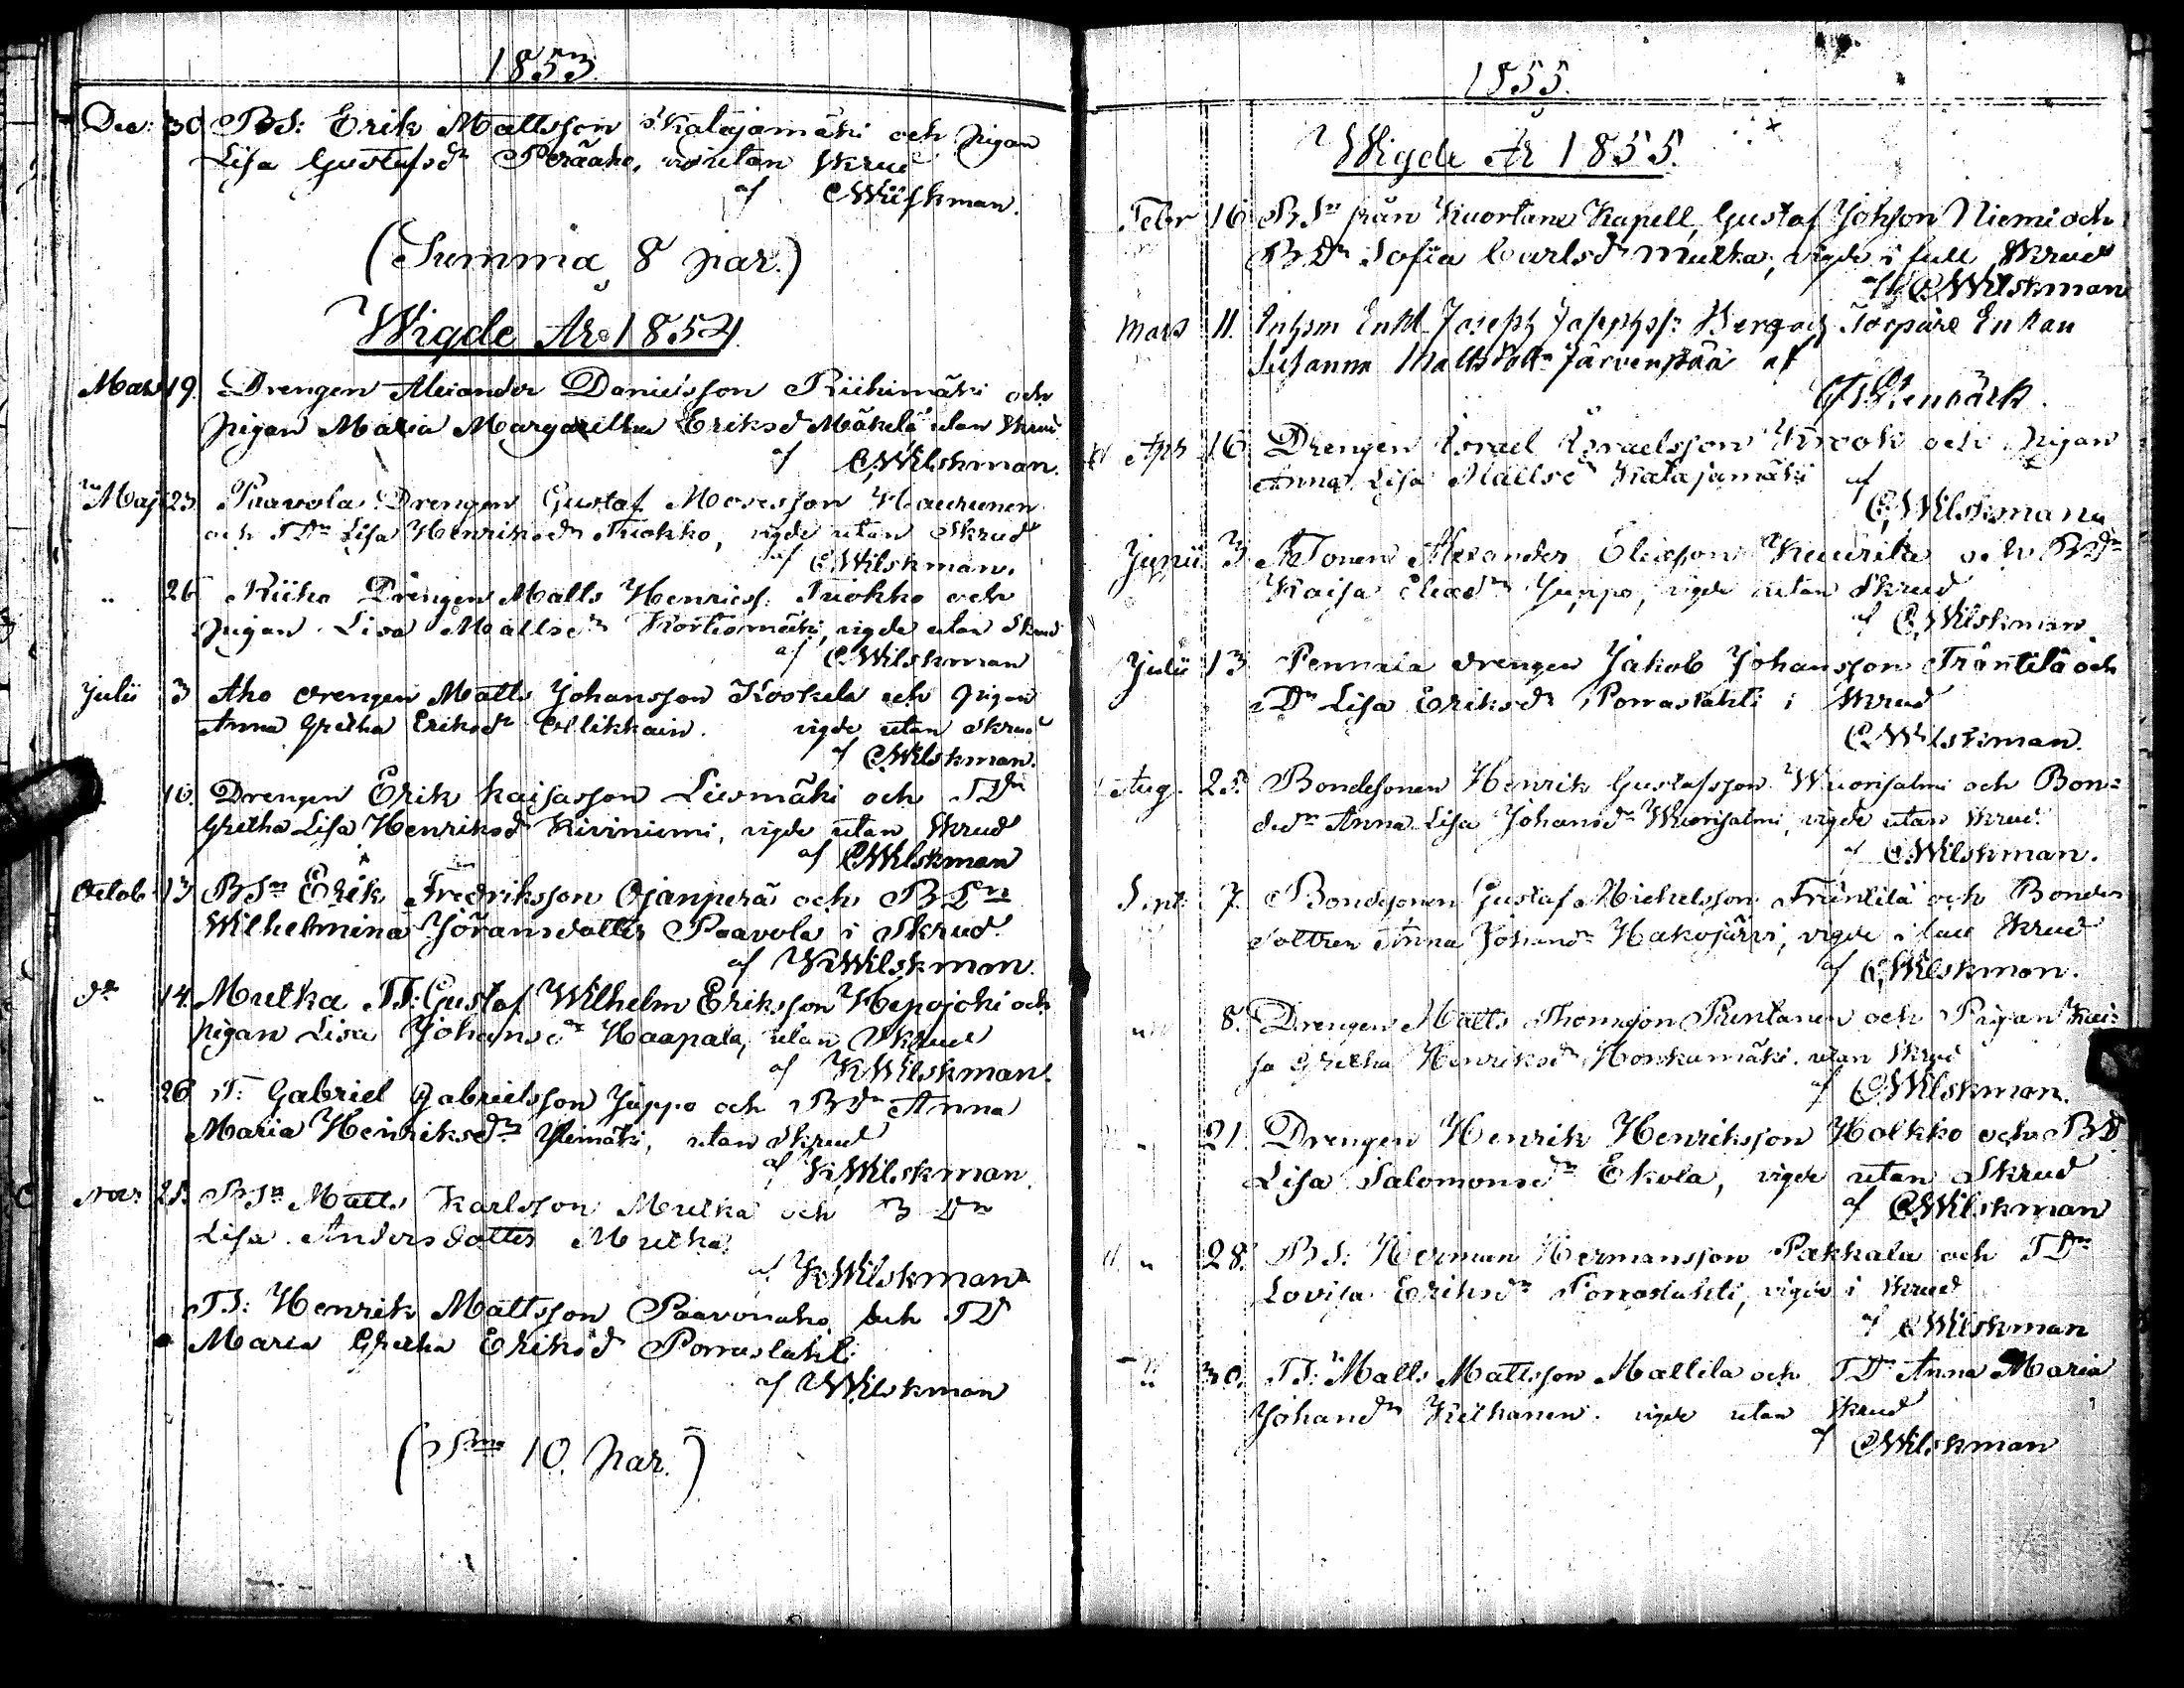 1853
Dec: 30 BS: Erik Mattsson Katajamäki och pigan
Lisa Gustafsdr Peräaho, utan Skrud
af CWilskman.
(Summa 8 par.)
Wigde År 1854.
Mars 19. Drengen Alexander Danielsson Riihimäki och
pigan Maria Margaretha Eriksd Mäkelä utan Skrud
af CWilskman.
Maj 23. Paavola Drengen Gustaf Mosesson Haurunen
och TDn Lisa Henriksdr Tuokko, vigde utan Skrud
af CWilskman.
" 26 Riiho Drengen Matts Henricss: Tuokko och
pigan Lisa Mattsdr Kortesmäki, vigde utan Skrud
af CWilskman
Julii 3 Aho drengen Matts Johansson Koskela och pigan
Anna Gretha Eriksdr Ollikkain. vigde utan Skrud
af CWilskman.
10. Drengen Erik Kaisasson Liesmäki och TDn
Gretha Lisa Henriksdr Kiviniemi, vigde utan Skrud
af CWilskman
Octob 13 BSn Erik Fredriksson Ojanperä och BDn
Wilhelmina Jöransdotter Paavola i Skrud.
af KWilskman.
dn 14. Mulka TS: Gustaf Wilhelm Eriksson Hepojoki och
pigan Lisa Johansdr Haapala, utan Skrud
af KWilskman.
" 26 T: Gabriel Gabrielsson Juppo och BDn Anna
Maria Henriksdr Ylimäki, utan Skrud
af KWilskman.
Nov: 25. BSn Matts Karlsson Mulka och BDn
Lisa Andersdotter Mulka.
af KWilskman
TS: Henrik Mattsson Paavonaho och TD
Maria Gretha Eriksd Porraslahti
af Wilskman
(Sma 10. par.)
1855.
Wigde År 1855.
Febr 16 BSn från Kuortane Kapell, Gustaf Johsson Niemi och
BDn Sofia Carlsdr Mulka, vigde i full Skrud
af CWilskman
Mars 11. Inhsm Enkl. Joseph Josephss: Berg och Torpare Enkan
Susanna Matts dottr Järvenpää af
Stenbäck.
Apr 16 Drengen Israel Israelsson Krook och pigan
Anna Lisa Mattsdr Katajamäki af
CWilskman
Junii 3 Alexander Eliasson Kuurila och BDn
Kaisa Eliasdr Juppo, vigde utan Skrud
af CWilskman
Julii 13 Pennala drengen Jakob Johansson Träntilä och
TDn Lisa Eriksdr Porraslahti i Skrud
CWilskman.
Aug. 25. Bondesonen Henrik Gustafsson Wuorisalmi och Bon=
dedn Anna Lisa Johansdr Wuorisalmi, vigde utan Skrud.
af CWilskman.
Sept. 7. Bondesonen Gustaf Michelsson Träntilä och Bonde
dottren Anna Johansdr Hakojärvi, vigde i full Skrud
af CWilskman.
" 8. Drengen Matts Thomasson Runtanen och Pigan Kai=
sa Gretha Henriksdr Honkamäki utan Skrud
af CWilskman.
" 21. Drengen Henrik Henriksson Holkko och BD
Lisa Salomonsdr Ekola, vigde utan Skrud
af CWilskman
" 28. BS: Herman Hermansson Pakkala och TDn
Lovisa Eriksdr Porraslahti, vigde i Skrud
af CWilskman
" 30. TS: Matts Mattsson Mattila och TDn Anna Maria
Johansdr Kelhanen. vigde utan Skrud
af CWilskman